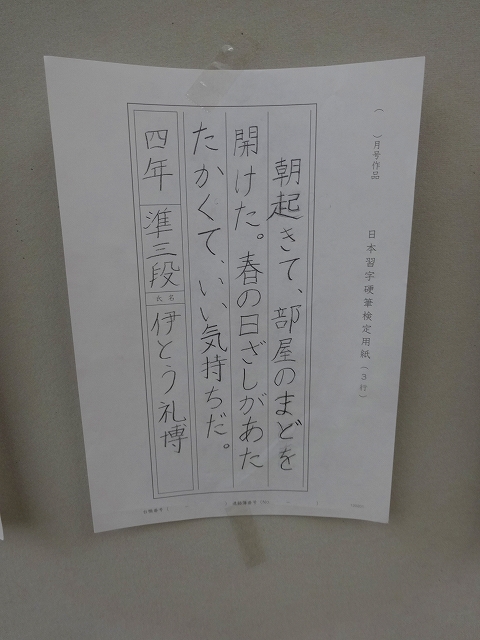 ( )月号作品
日本習字硬筆検定用紙(3行)
朝起きて、部屋のまどを
開けた。春の日ざしがあた
たかくて、いい気持ちだ。
四年 準三段 氏名 伊とう礼博